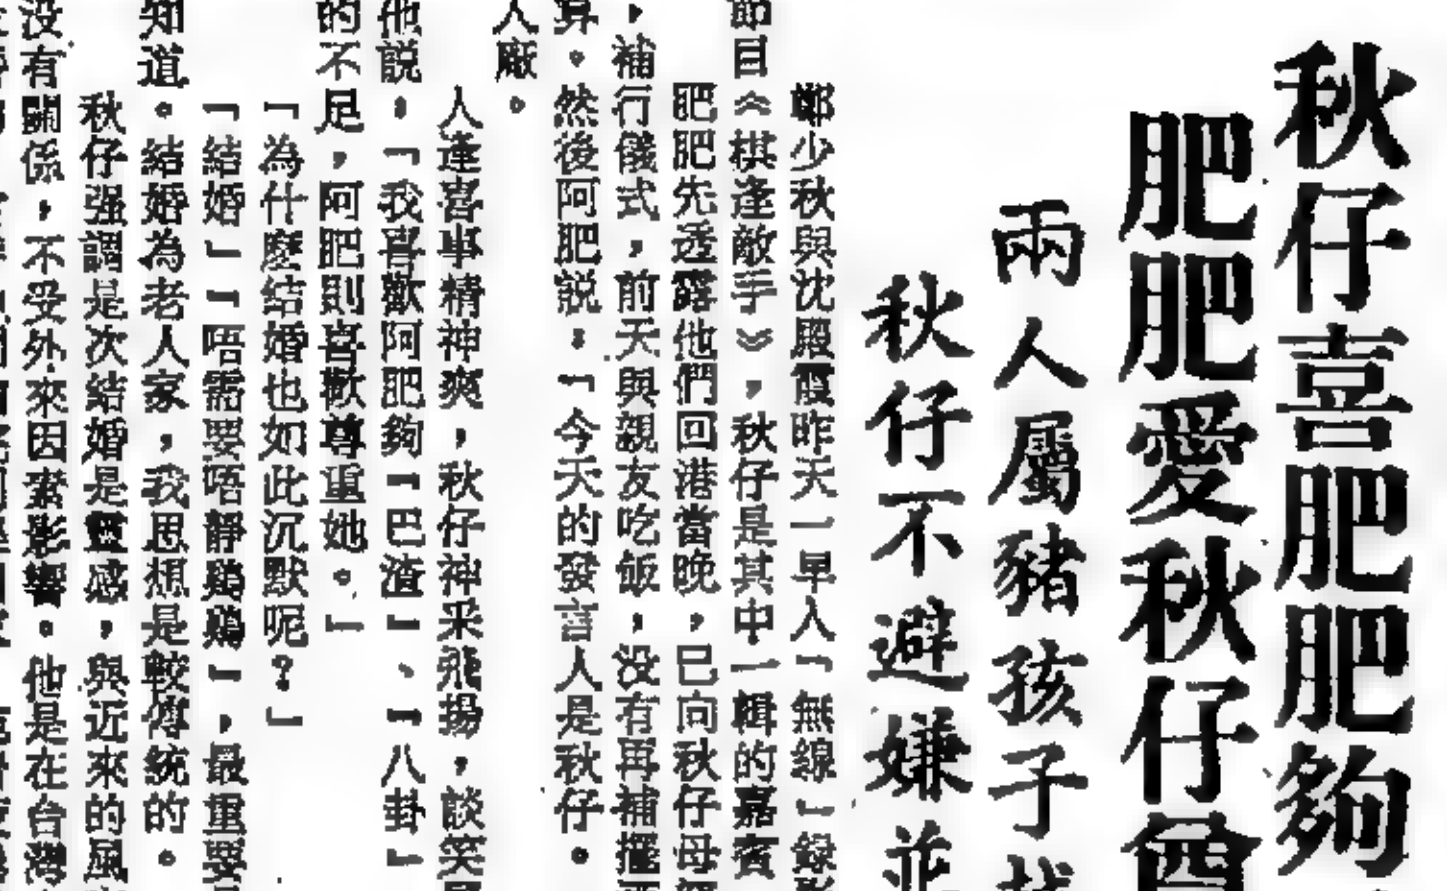 秋仔喜肥肥夠
肥肥愛秋仔尊
兩人屬豬孩子
秋仔不避嫌並
鄭少秋與沈殿霞昨天一早入「無線」錄影
節目《棋逢敵手》，秋仔是其中一輯的嘉賓
肥肥先透露他們回港當晚，已向秋仔母親
，補行儀式，前天與親友吃飯，没有再補擺酒
算。然後阿肥説：「今天的發言人是秋仔。
人廠。
人逢喜事精神爽，秋仔神采飛揚，談笑風
他説：「我喜歡阿肥夠「巴渣」、「八卦」
的不足，阿肥則喜歡尊重她。」
「為什麽結婚也如此沉默呢？」
「結婚」「唔需要唔靜鷄鷄」，最重要
知道。結婚為老人家，我思想是較傳統的。
秋仔强調是次結婚是靈感，與近來的風
没有關係，不受外來因素影響。他是在台灣